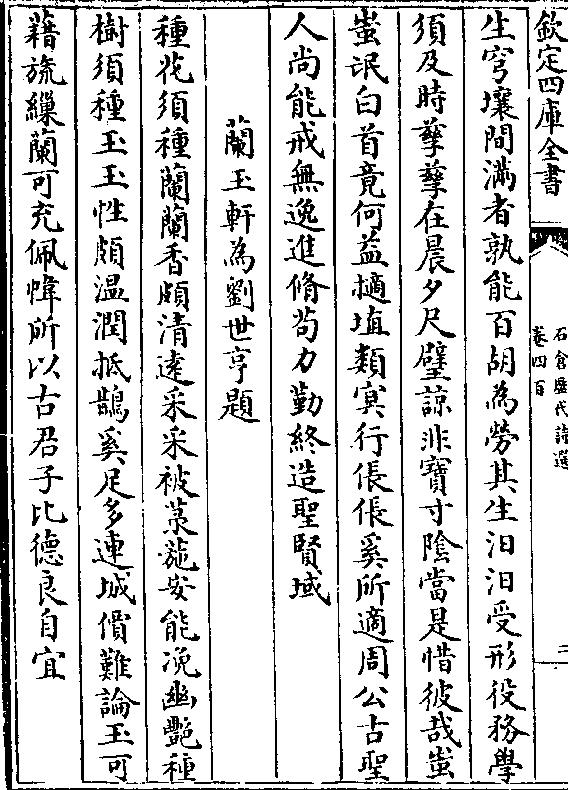 欽定四庫全書
石倉歷代詩選
卷四百
二
生穹壤間滿者孰能百胡為勞其生汨汨受形役務學
須及時孳孳在晨夕尺璧諒非寶寸陰當是惜彼哉蚩
蚩氓白首竟何益擿埴類冥行倀倀奚所適周公古聖
人尚能戒無逸進脩茍力勤終造聖賢域
蘭玉軒為劉世亨題
種花須種蘭蘭香頗清逺采采被菉葹安能凂幽艷種
樹須種玉玉性頗温潤抵鵲奚足多連城價難論玉可
藉旒繅蘭可充佩幃所以古君子比德良自宜